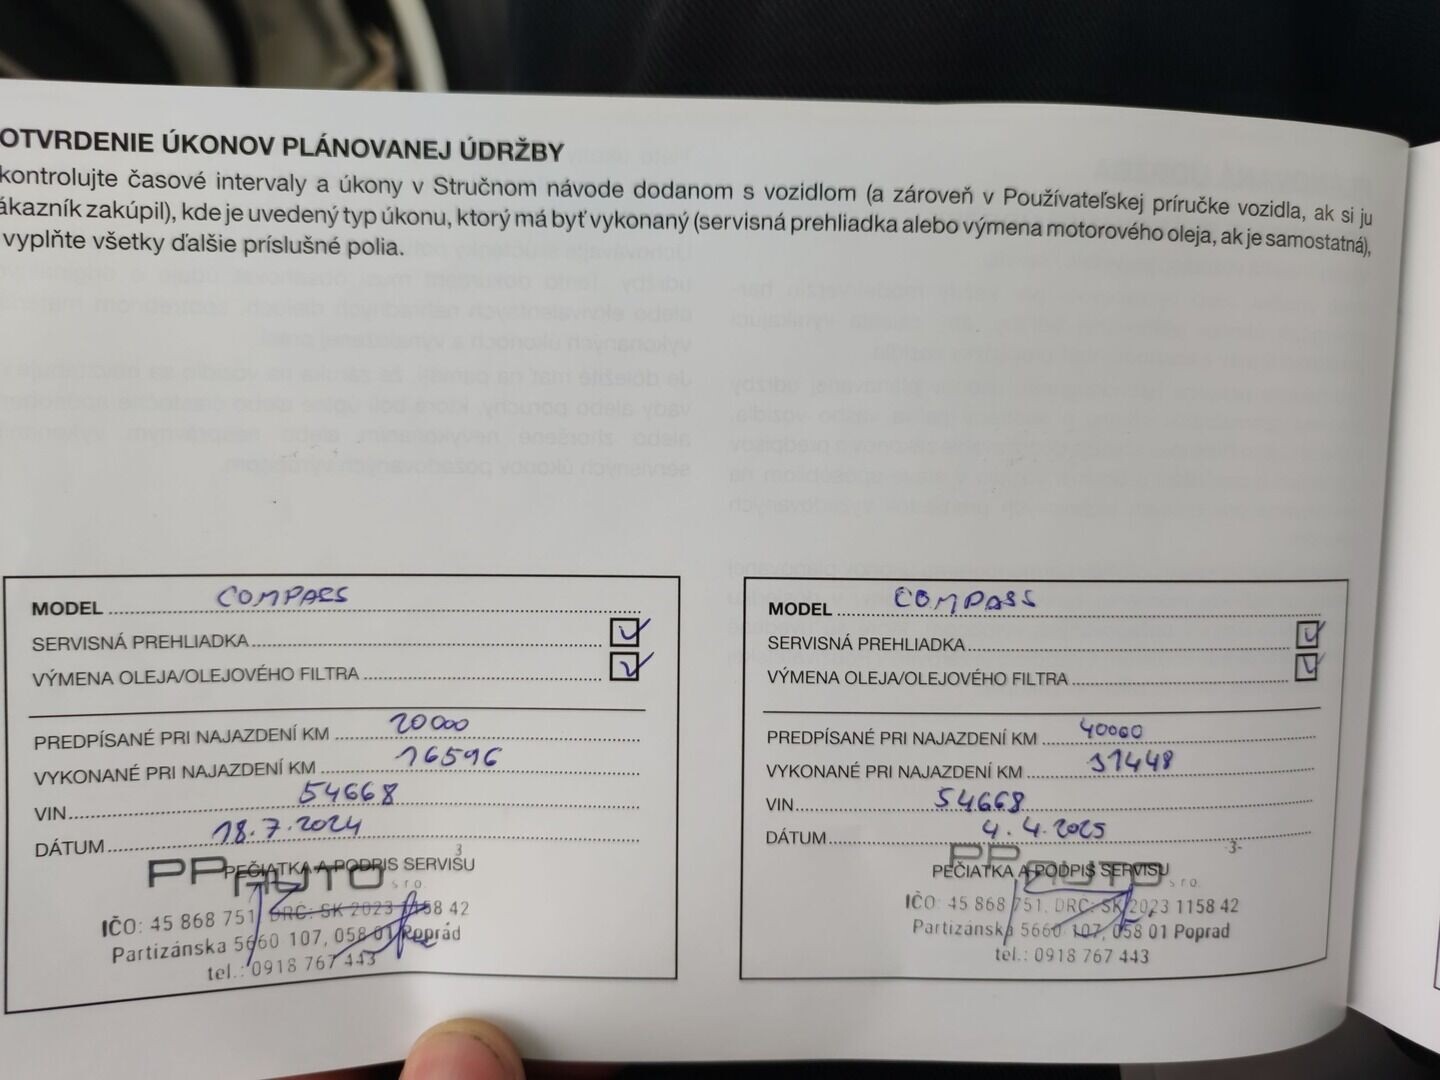 OTVRDENIE ÚKONOV PLÁNOVANEJ ÚDRŽBY
kontrolujte časové intervaly a úkony v Stručnom návode dodanom s vozidlom (a zároveň v Používateľskej príručke vozidla, ak si ju
ákazník zakúpil), kde je uvedený typ úkonu, ktorý má byť vykonaný (servisná prehliadka alebo výmena motorového oleja, ak je samostatná),
vyplňte všetky ďalšie príslušné polia.
MODEL COMPASS
SERVISNÁ PREHLIADKA
VÝMENA OLEJA/OLEJOVÉHO FILTRA
PREDPÍSANÉ PRI NAJAZDENÍ KM 20000
VYKONANÉ PRI NAJAZDENÍ KM 16596
VIN 54668
DÁTUM 18.7.2024
3
PEČIATKA A PODPIS SERVISU
PP AUTO s.r.o.
IČO: 45 868 751, DRČ: SK 2023 1158 42
Partizánska 5660 107, 058 01 Poprad
tel.: 0918 767 443
MODEL COMPASS
SERVISNÁ PREHLIADKA
VÝMENA OLEJA/OLEJOVÉHO FILTRA
PREDPÍSANÉ PRI NAJAZDENÍ KM 40000
VYKONANÉ PRI NAJAZDENÍ KM 31448
VIN 54668
DÁTUM 4.4.2025
-3-
PEČIATKA A PODPIS SERVISU
PP AUTO s.r.o.
IČO: 45 868 751, DRČ: SK 2023 1158 42
Partizánska 5660 107, 058 01 Poprad
tel.: 0918 767 443